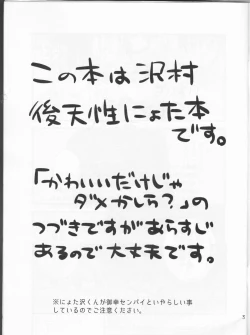 この本は沢村
後天性にょた本
です。
「かわいいだけじゃ
ダメかしら?」の
つづきですがあらすじ
あるので大丈夫です。
※にょた沢くんが御幸センパイといやらしい事
しているのでご注意ください。
3